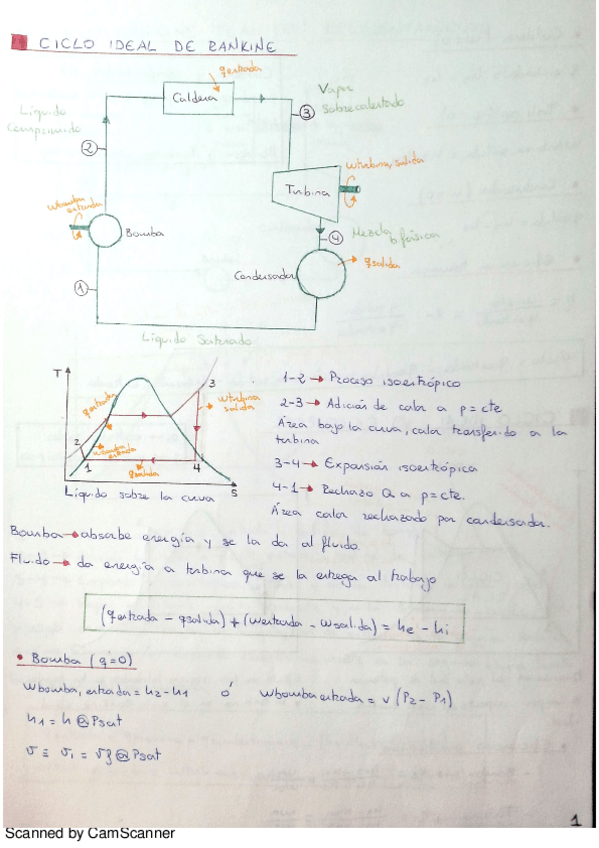 CICLO IDEAL DE RANKINE
qentrada
Caldera
Vapor
Sobrecalentado
Líquido
Comprimido
3
2
wturbina, salida
Turbina
wbomba
entrada
Bomba
4
Mezcla
bifásica
Condensador
qsalida
1
Líquido Saturado
T
3
qentrada
wturbina
salida
2
wbomba
entrada
1
qsalida
4
s
Líquido sobre la curva
1-2 → Proceso isoentrópico
2-3 → Adición de calor a p=cte
Área bajo la curva, calor transferido a la
turbina
3-4 → Expansión isoentrópica
4-1 → Rechazo Q a p=cte.
Área calor rechazado por condensador.
Bomba → absorbe energía y se la da al fluido.
Fluido → da energía a turbina que se la entrega al trabajo
(qentrada - qsalida) + (wentrada - wsalida) = he - hi
• Bomba (q=0)
wbomba, entrada = h2-h1 ó wbomba entrada = v (P2 - P1)
h1 = h @ Psat
v ≡ v1 = vf @ Psat
1
Scanned by CamScanner